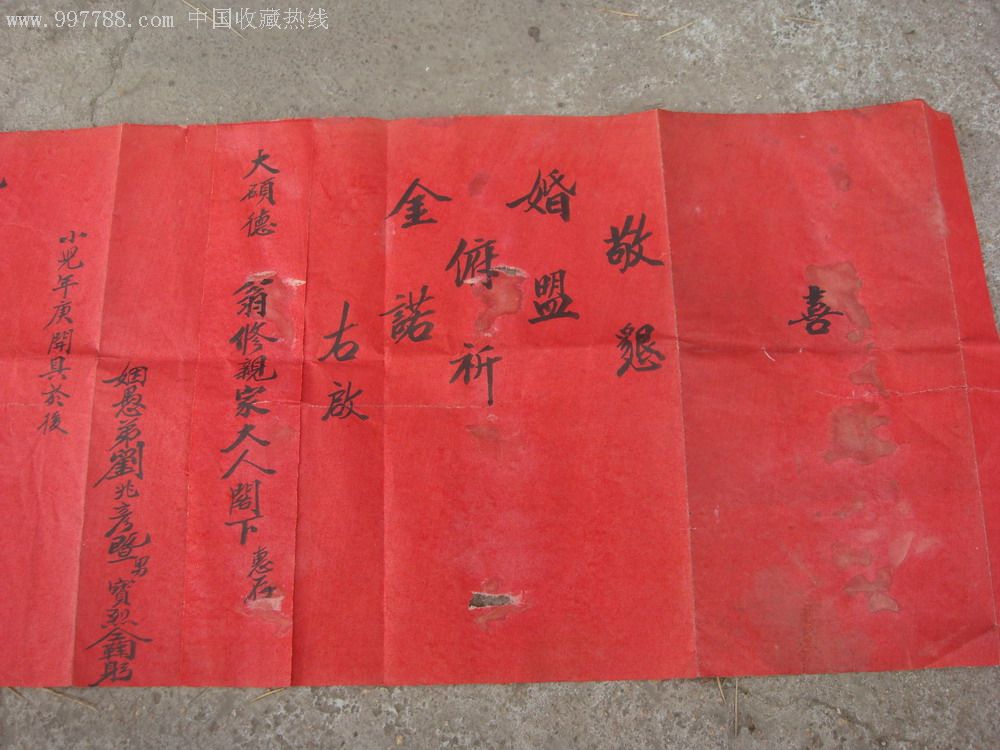 www.997788.com 中国收藏热线
喜
敬懇
婚盟
俯祈
金諾
右啟
大碩德 翁修親家大人閣下 惠存
姻愚弟劉兆彥暨男寶烈鞠躬
小兒年庚開具於後